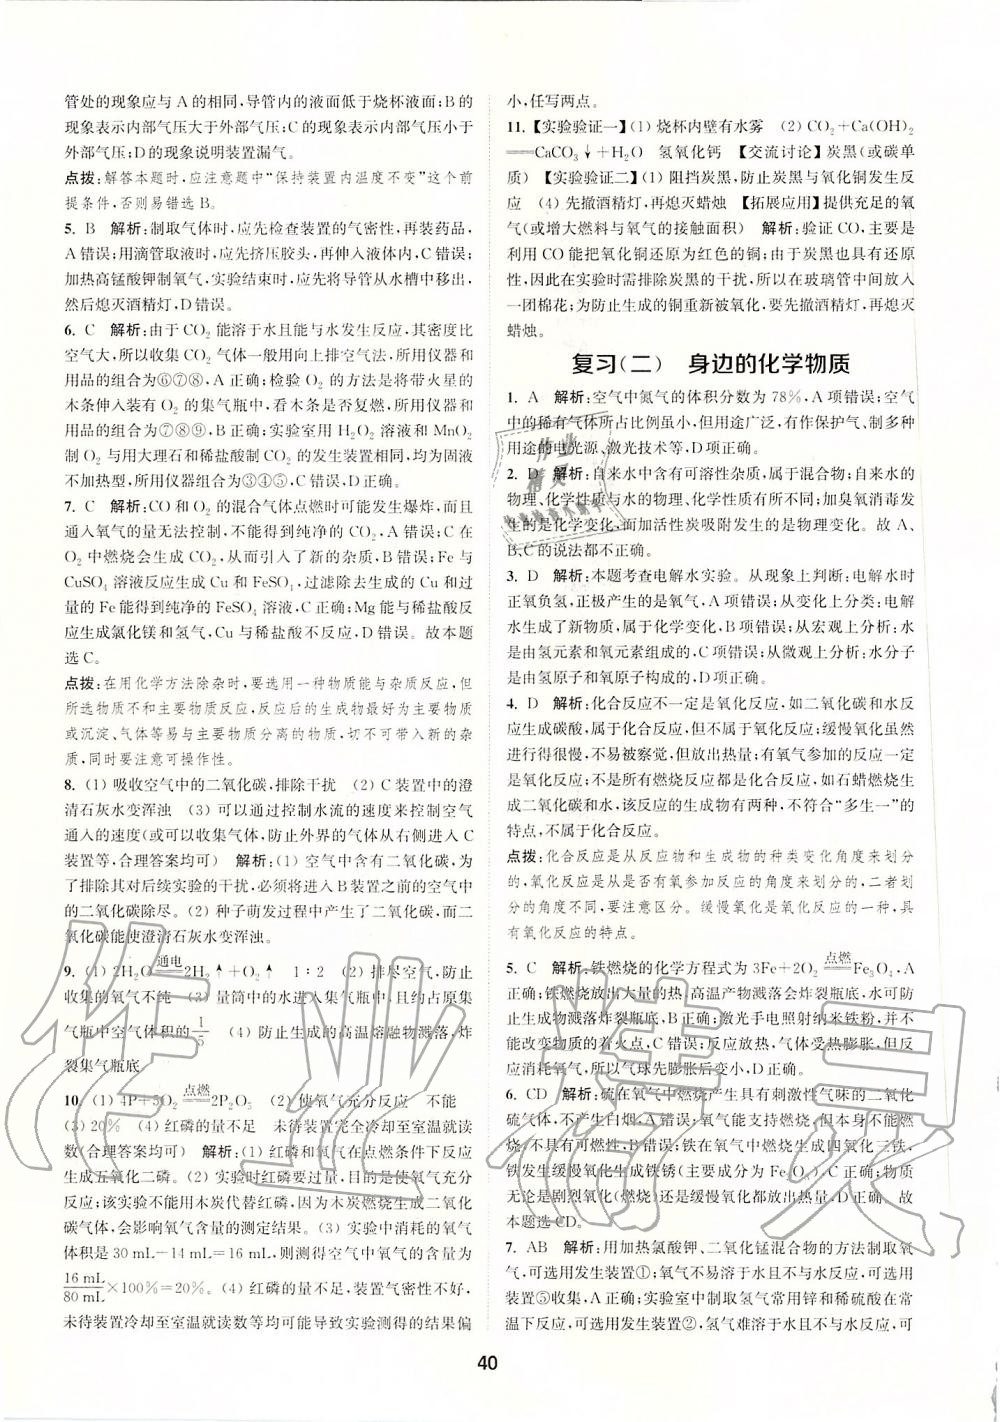 管处的现象应与A的相同,导管内的液面低于烧杯液面;B的
现象表示内部气压大于外部气压;C的现象表示内部气压小于
外部气压;D的现象说明装置漏气。
点拨:解答本题时,应注意题中“保持装置内温度不变”这个前
提条件,否则易错选B。
5. B 解析:制取气体时,应先检查装置的气密性,再装药品,
A错误;用滴管取液时,应先挤压胶头,再伸入液体中,C错误;
加热高锰酸钾制氧气,实验结束时,应先将导管从水槽中移出,
然后熄灭酒精灯,D错误。
6. C 解析:由于CO₂能溶于水且能与水发生反应,其密度比
空气大,所以收集CO₂气体一般用向上排空气法,所用仪器和
用品的组合为⑥⑦⑧,A正确;检验O₂的方法是将带火星的
木条伸入装有O₂的集气瓶中,看木条是否复燃,所用仪器和
用品的组合为⑦⑧⑨,B正确;实验室用H₂O₂溶液和MnO₂
制O₂与用大理石和稀盐酸制CO₂的发生装置相同,均为固液
不加热型,所用仪器组合为③④⑤,C错误,D正确。
7. C 解析:CO和O₂的混合气体点燃时可能发生爆炸,而且
通入氧气的量无法控制,不能得到纯净的CO₂,A错误;C在
O₂中燃烧会生成CO₂,从而引入了新的杂质,B错误;Fe与
CuSO₄溶液反应生成Cu和FeSO₄,过滤除去生成的Cu和过
量的Fe能得到纯净的FeSO₄溶液,C正确;Mg能与稀盐酸反
应生成氯化镁和氢气,Cu与稀盐酸不反应,D错误。故本题
选C。
点拨:在用化学方法除杂时,要选用一种物质能与杂质反应,但
所选物质不和主要物质反应,反应后的生成物最好为主要物质
或沉淀、气体等易与主要物质分离的物质,切不可带入新的杂
质,同时要注意可操作性。
8. (1) 吸收空气中的二氧化碳,排除干扰 (2) C装置中的澄
清石灰水变浑浊 (3) 可以通过控制水流的速度来控制空气
通入的速度(或可以收集气体,防止外界的气体从右侧进入C
装置等,合理答案均可) 解析:(1) 空气中含有二氧化碳,
为了排除其对后续实验的干扰,必须将进入B装置之前的空气中
的二氧化碳除尽。(2) 种子萌发过程中产生了二氧化碳,而二
氧化碳能使澄清石灰水变浑浊。
9. (1) 2H₂O通电══2H₂↑+O₂↑ 1∶2 (2) 排尽空气,防止
收集的氧气不纯 (3) 量筒中的水进入集气瓶中,且约占原集
气瓶中空气体积的1/5 (4) 防止生成的高温熔融物溅落,炸
裂集气瓶底
10. (1) 4P+5O₂点燃══2P₂O₅ (2) 使氧气充分反应 不能
(3) 20% (4) 红磷的量不足 未待装置完全冷却至室温就读
数(合理答案均可) 解析:(1) 红磷和氧气在点燃条件下反应
生成五氧化二磷。(2) 实验时红磷要过量,目的是使氧气充分
反应;该实验不能用木炭代替红磷,因为木炭燃烧生成二氧化
碳气体,会影响氧气含量的测定结果。(3) 实验中消耗的氧气
体积是30 mL-14 mL=16 mL,则测得空气中氧气的含量为
16 mL/80 mL×100%=20%。(4) 红磷的量不足,装置气密性不好,
未待装置冷却至室温就读数等均可能导致实验测得的结果偏
小,任写两点。
11. 【实验验证一】(1) 烧杯内壁有水雾 (2) CO₂+Ca(OH)₂
══CaCO₃↓+H₂O 氢氧化钙 【交流讨论】炭黑(或碳单
质) 【实验验证二】(1) 阻挡炭黑,防止炭黑与氧化铜发生反
应 (4) 先撤酒精灯,再熄灭蜡烛 【拓展应用】提供充足的氧
气(或增大燃料与氧气的接触面积) 解析:验证CO,主要是
利用CO能把氧化铜还原为红色的铜;由于炭黑也具有还原
性,因此在实验时需排除炭黑的干扰,所以在玻璃管中间放入
一团棉花;为防止生成的铜重新被氧化,要先撤酒精灯,再熄灭
蜡烛。
复习(二) 身边的化学物质
1. A 解析:空气中氮气的体积分数为78%,A项错误;空气
中的稀有气体所占比例虽小,但用途广泛,有作保护气、制多种
用途的电光源、激光技术等,D项正确。
2. D 解析:自来水中含有可溶性杂质,属于混合物;自来水的
物理、化学性质与水的物理、化学性质有所不同;加臭氧消毒发
生的是化学变化,而加活性炭吸附发生的是物理变化。故A、
B、C的说法都不正确。
3. D 解析:本题考查电解水实验。从现象上判断:电解水时
正氧负氢,正极产生的是氧气,A项错误;从变化上分类:电解
水生成了新物质,属于化学变化,B项错误;从宏观上分析:水
是由氢元素和氧元素组成的,C项错误;从微观上分析:水分子
是由氢原子和氧原子构成的,D项正确。
4. D 解析:化合反应不一定是氧化反应,如二氧化碳和水反
应生成碳酸,属于化合反应,但不属于氧化反应;缓慢氧化虽然
进行得很慢,不易被察觉,但放出热量;有氧气参加的反应一定
是氧化反应;不是所有燃烧反应都是化合反应,如石蜡燃烧生
成二氧化碳和水,该反应的生成物有两种,不符合“多生一”的
特点,不属于化合反应。
点拨:化合反应是从反应物和生成物的种类变化角度来划分
的,氧化反应是从是否有氧参加反应的角度来划分的,二者划
分的角度不同,要注意区分。缓慢氧化是氧化反应的一种,具
有氧化反应的特点。
5. C 解析:铁燃烧的化学方程式为3Fe+2O₂点燃══Fe₃O₄,A
正确;铁燃烧放出大量的热,高温产物溅落会炸裂瓶底,水可防
止生成物溅落炸裂瓶底,B正确;激光手电照射纳米铁粉,并不
能改变物质的着火点,C错误;反应放热,气体受热膨胀,但反
应消耗氧气,所以气球先膨胀后变小,D正确。
6. CD 解析:硫在氧气中燃烧产生具有刺激性气味的二氧化
硫气体,不产生白烟,A错误;氧气能支持燃烧,但本身不能燃
烧,不具有可燃性,B错误;铁在氧气中燃烧生成四氧化三铁,
铁发生缓慢氧化生成铁锈(主要成分为Fe₂O₃),C正确;物质
无论是剧烈氧化(燃烧)还是缓慢氧化都放出热量,D正确。故
本题选CD。
7. AB 解析:用加热氯酸钾、二氧化锰混合物的方法制取氧
气,可选用发生装置①;氧气不易溶于水且不与水反应,可用
装置⑤收集,A正确;实验室中制取氢气常用锌和稀硫酸在常
温下反应,可选用发生装置②,氢气难溶于水且不与水反应,可
40
作业精灵
作业精灵